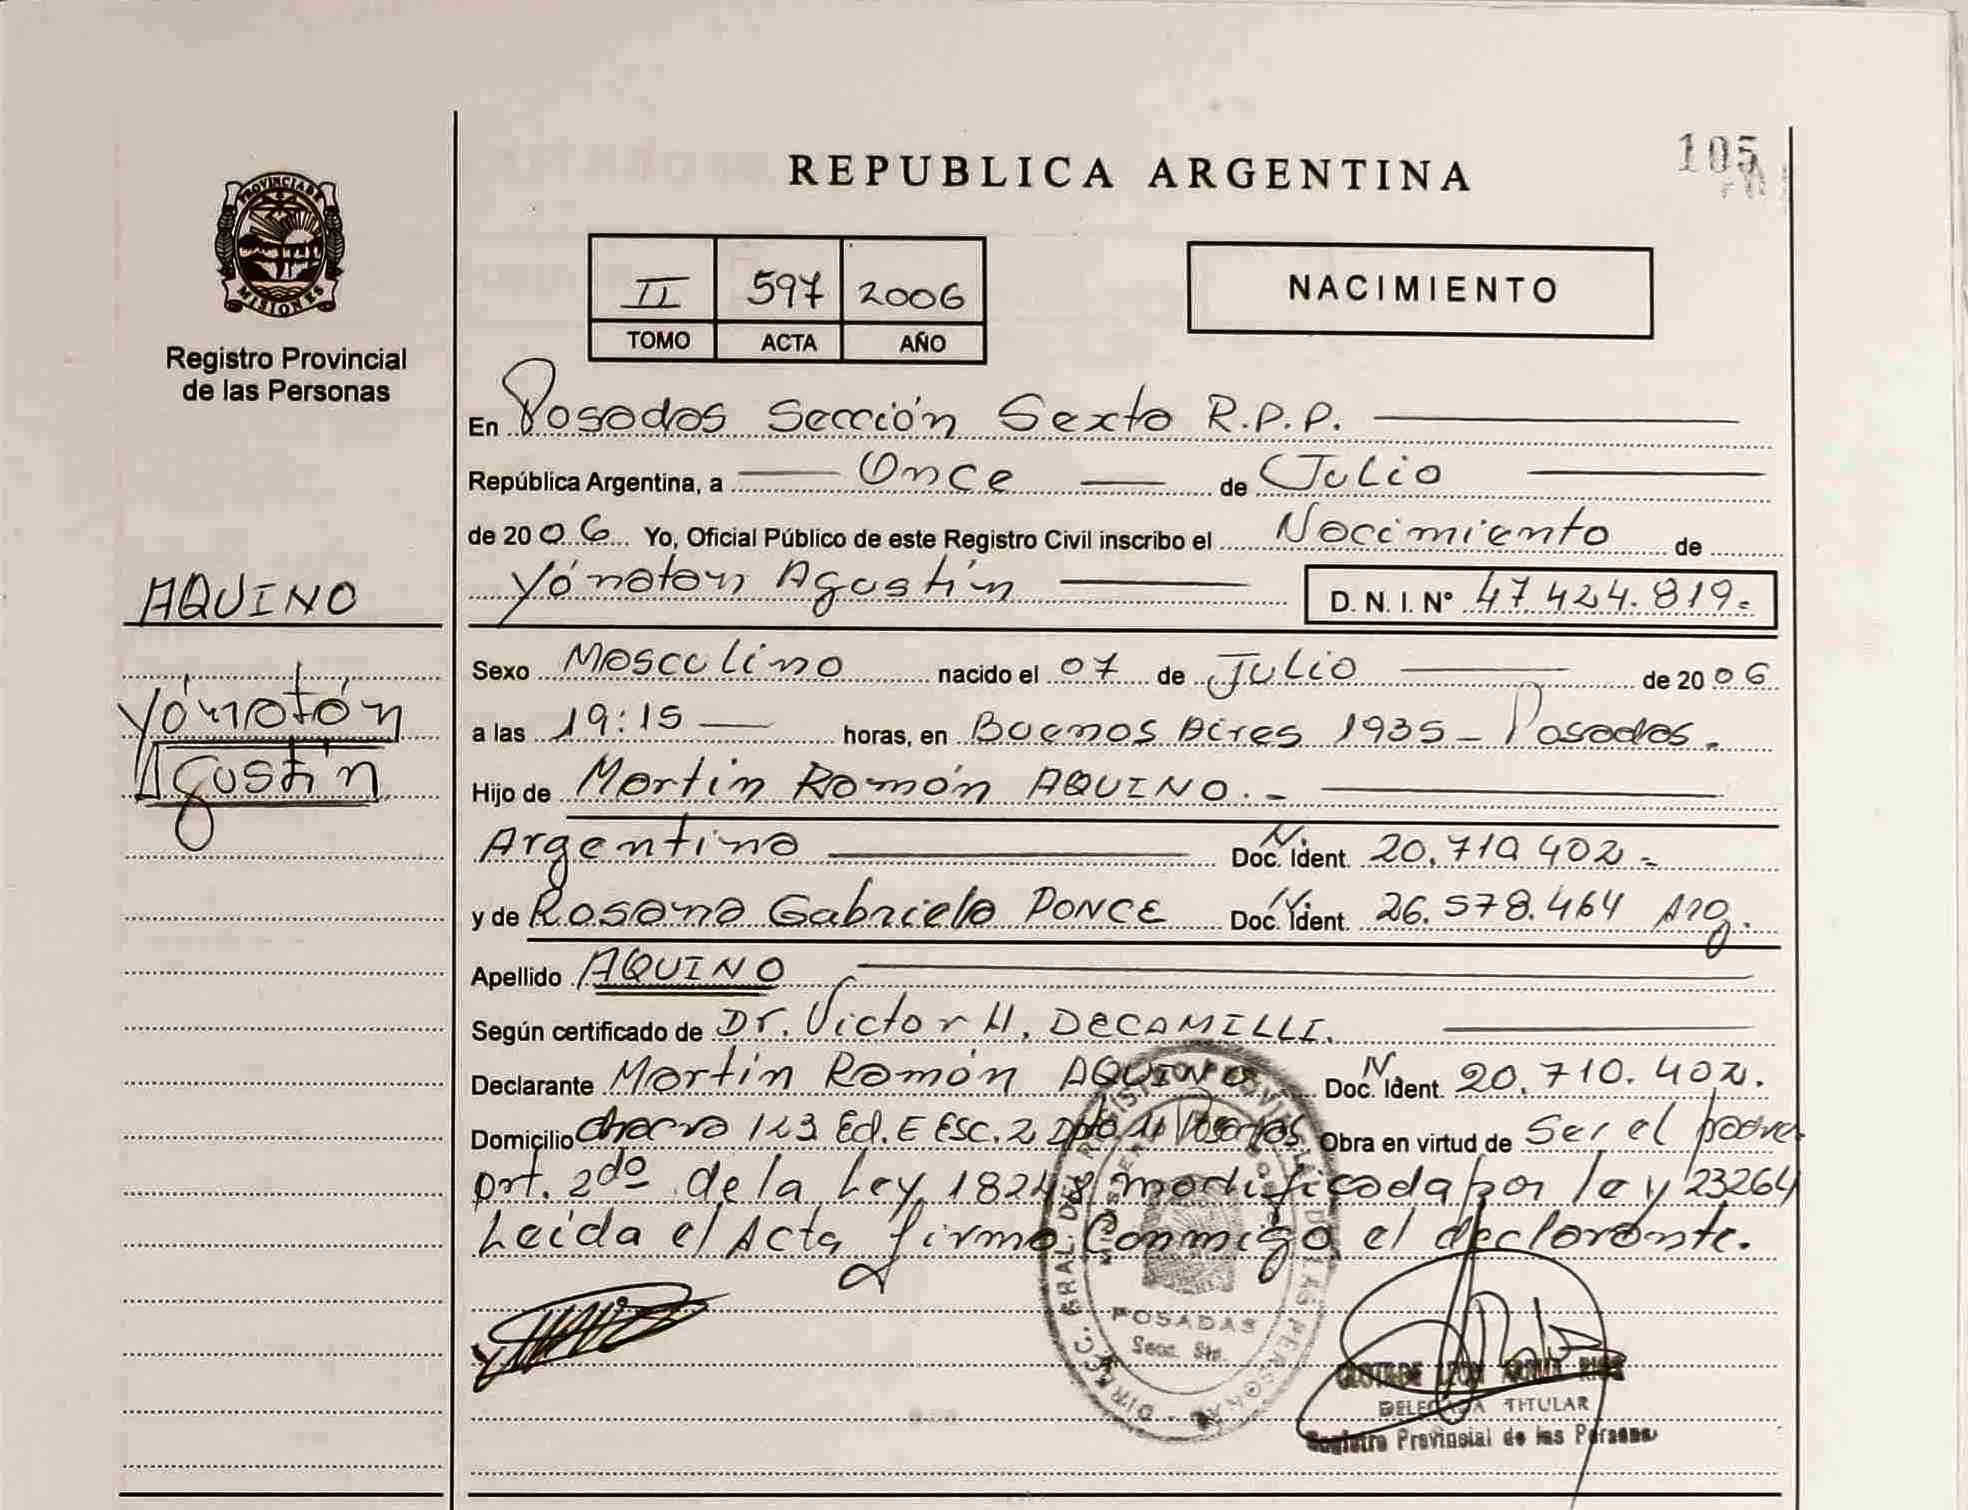 105
REPUBLICA ARGENTINA
PROVINCIA DE
MISIONES
Registro Provincial
de las Personas
II 597 2006
TOMO ACTA AÑO
NACIMIENTO
En Posadas Sección Sexta R.P.P.
República Argentina, a Once de Julio
de 2006 Yo, Oficial Público de este Registro Civil inscribo el Nacimiento de
AQUINO
Yónatan Agustín D. N. I. Nº 47424.819.=
Yónatán
Agustín
Sexo Masculino nacido el 07 de Julio de 2006
a las 19:15 horas, en Buenos Aires 1935 - Posadas.
Hijo de Martín Ramón AQUINO.-
Argentina N. Doc. Ident. 20.710 402.=
y de Rosana Gabriela PONCE Doc. Ident. 26.578.464 Arg.
Apellido AQUINO
Según certificado de Dr. Victor H. DECAMILLI.
Declarante Martín Ramón AQUINO N Doc. Ident. 20.710.402.
Domicilio Chacra 123 Ed. E Esc. 2 Dpto. Posadas Obra en virtud de Ser el padre
art. 2do de la Ley 18248 modificada por ley 23264
Leida el Acta firma Conmigo el declarante.
DIREC. GRAL. DEL REGISTRO PROVINCIAL DE LAS PERSONAS
POSADAS
Secc. 6ta.
DELEGADA TITULAR
Registro Provincial de las Personas